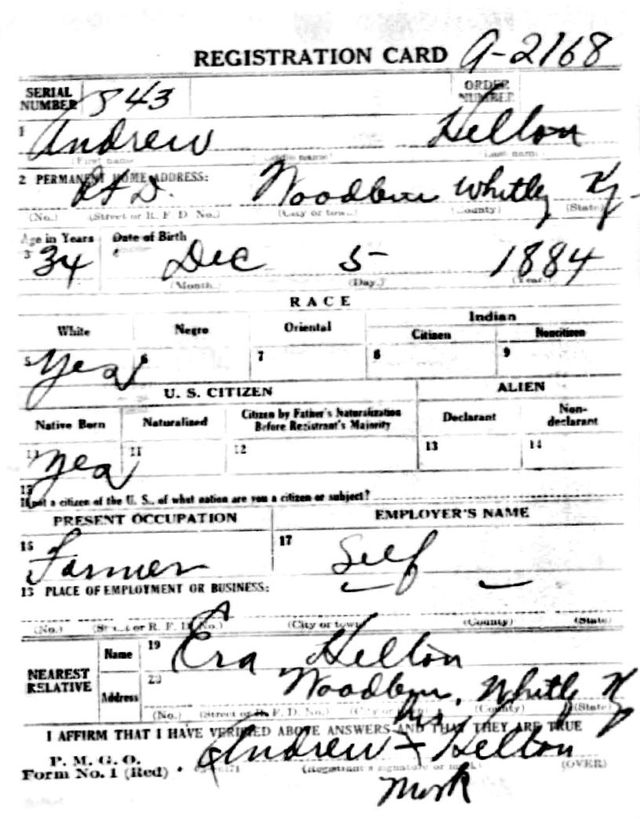 REGISTRATION CARD A-2168
SERIAL NUMBER 843 ORDER NUMBER
1 Andrew Helton
(First name) (Middle name) (Last name)
2 PERMANENT HOME ADDRESS:
R.F.D. Woodbine Whitley Ky.
(No.) (Street or R. F. D. No.) (City or town) (County) (State)
Age in Years Date of Birth
3 34 4 Dec 5 1884
(Month.) (Day.) (Year.)
RACE
White Negro Oriental Indian
Citizen Noncitizen
5 Yes 6 7 8 9
U. S. CITIZEN ALIEN
Native Born Naturalized Citizen by Father's Naturalization Before Registrant's Majority Declarant Non-declarant
10 Yes 11 12 13 14
15
If not a citizen of the U. S., of what nation are you a citizen or subject?
PRESENT OCCUPATION EMPLOYER'S NAME
16 Farmer 17 Self
18 PLACE OF EMPLOYMENT OR BUSINESS:
(No.) (Street or R. F. D. No.) (City or town) (County) (State)
NEAREST RELATIVE
Name 19 Era Helton
Address 20 Woodbine, Whitley Ky
(No.) (Street or R. F. D. No.) (City or town) (County) (State)
I AFFIRM THAT I HAVE VERIFIED ABOVE ANSWERS AND THAT THEY ARE TRUE
his
P. M. G. O.
Form No. 1 (Red) Andrew + Helton
(Registrant's signature or mark) (OVER)
Mark